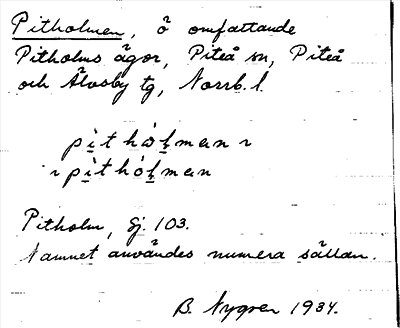 Pitholmen, ö omfattande
Pitholms ägor, Piteå sn, Piteå
och Älvsby tg, Norrb. l.
pìthòlman
pìthólman
Pitholm, Gj. 103.
Namnet användes numera sällan.
B. Nygren 1934.